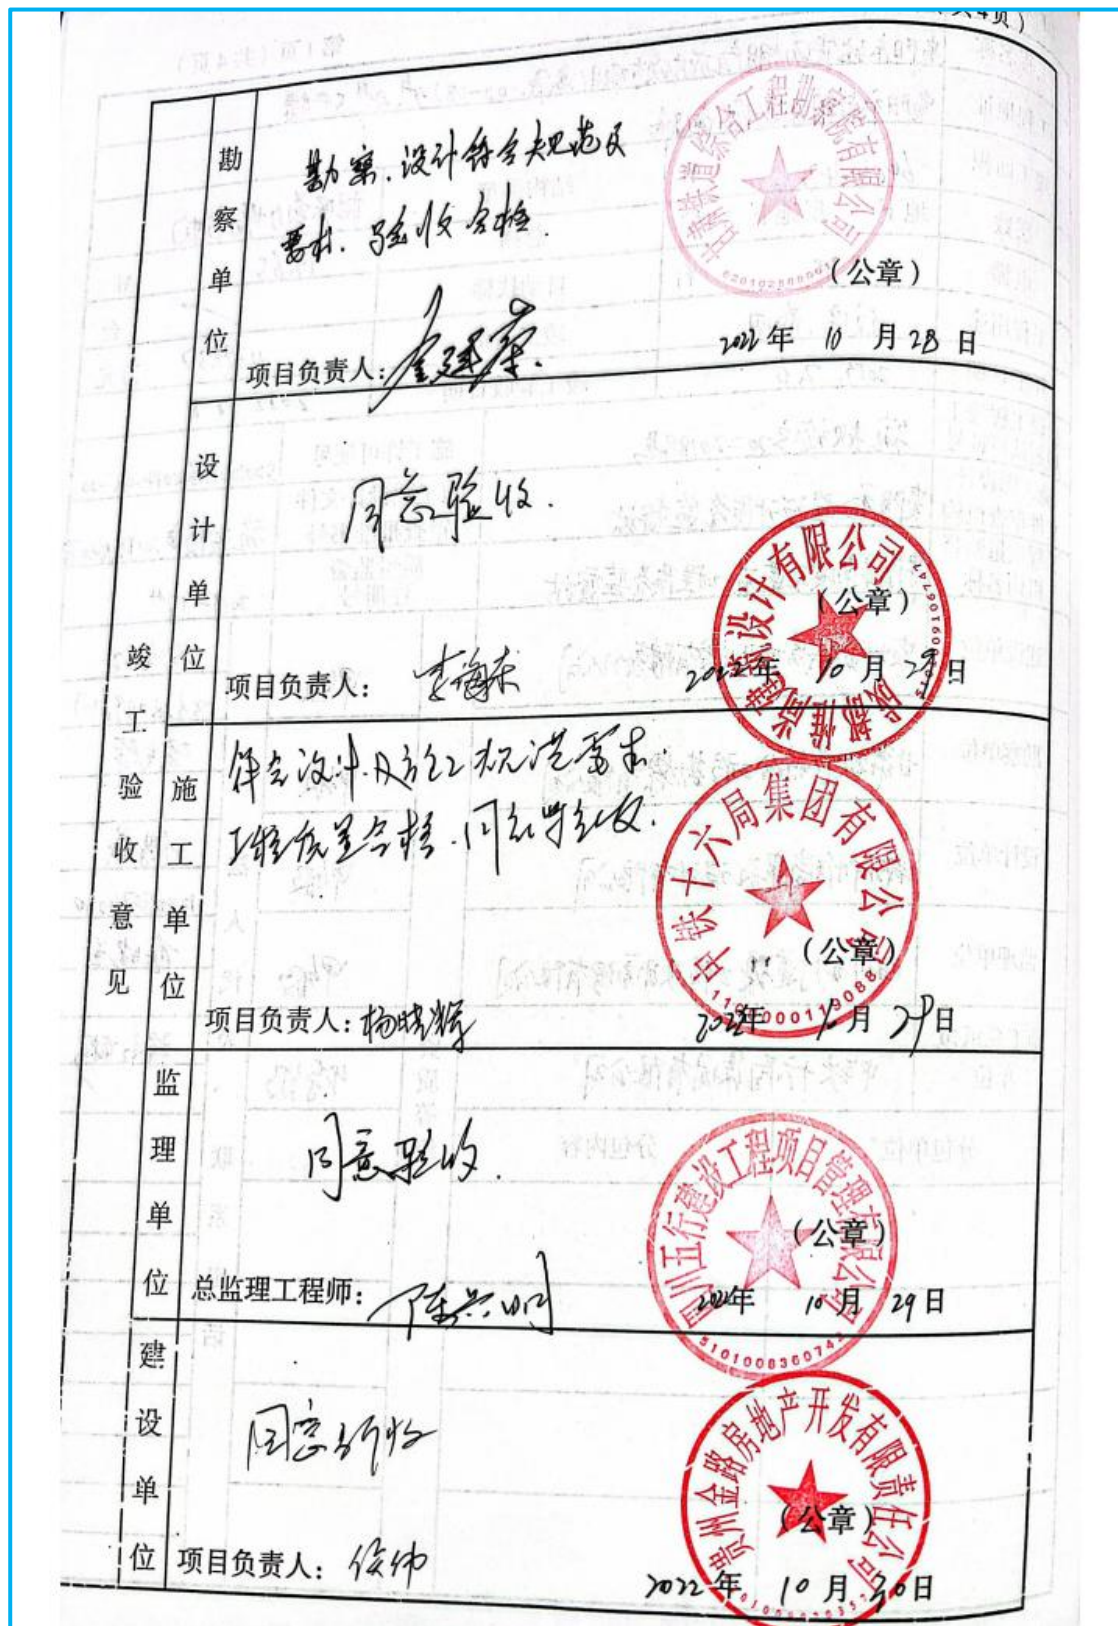 共4页)
竣工验收意见
勘察单位
勘察、设计符合规范及
要求、验收合格.
甘肃铁道综合工程勘察院有限公司
(公章)
项目负责人:
2022年 10 月 28 日
设计单位
同意验收.
设计有限公司
(公章)
项目负责人: 李海东
2022年 10 月 29日
施工单位
符合设计及施工规范要求.
工程质量合格.同意验收.
中铁十六局集团有限公司
(公章)
1100000119088
项目负责人: 杨晓辉
2022年 10月 29日
监理单位
同意验收.
四川五行建设工程项目管理有限公司
(公章)
总监理工程师: 陈兴明
2022年 10 月 29 日
5101008360742
建设单位
同意验收
贵州金路房地产开发有限责任公司
(公章)
项目负责人:
2022 年 10 月 30日